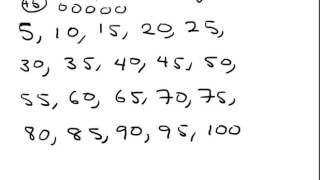 +5 00000
5, 10, 15, 20, 25,
30, 35, 40, 45, 50,
55, 60, 65, 70, 75,
80, 85, 90, 95, 100